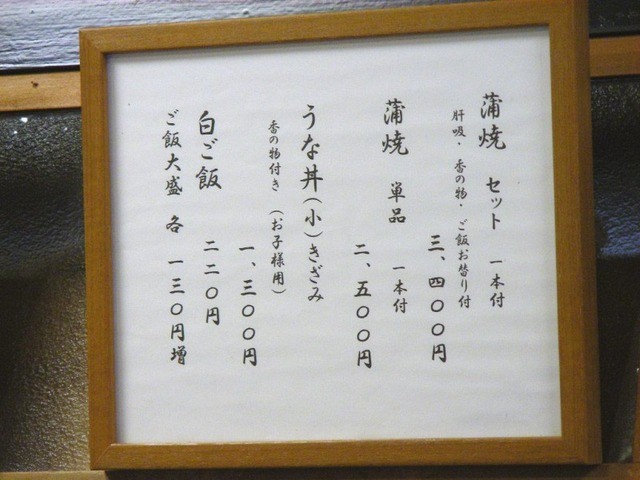 蒲焼 セット 一本付
肝吸・香の物・ご飯お替り付
三、四〇〇円
蒲焼 単品 一本付
二、五〇〇円
うな丼(小)きざみ
香の物付き (お子様用)
一、三〇〇円
白ご飯 二二〇円
ご飯大盛 各 一三〇円増